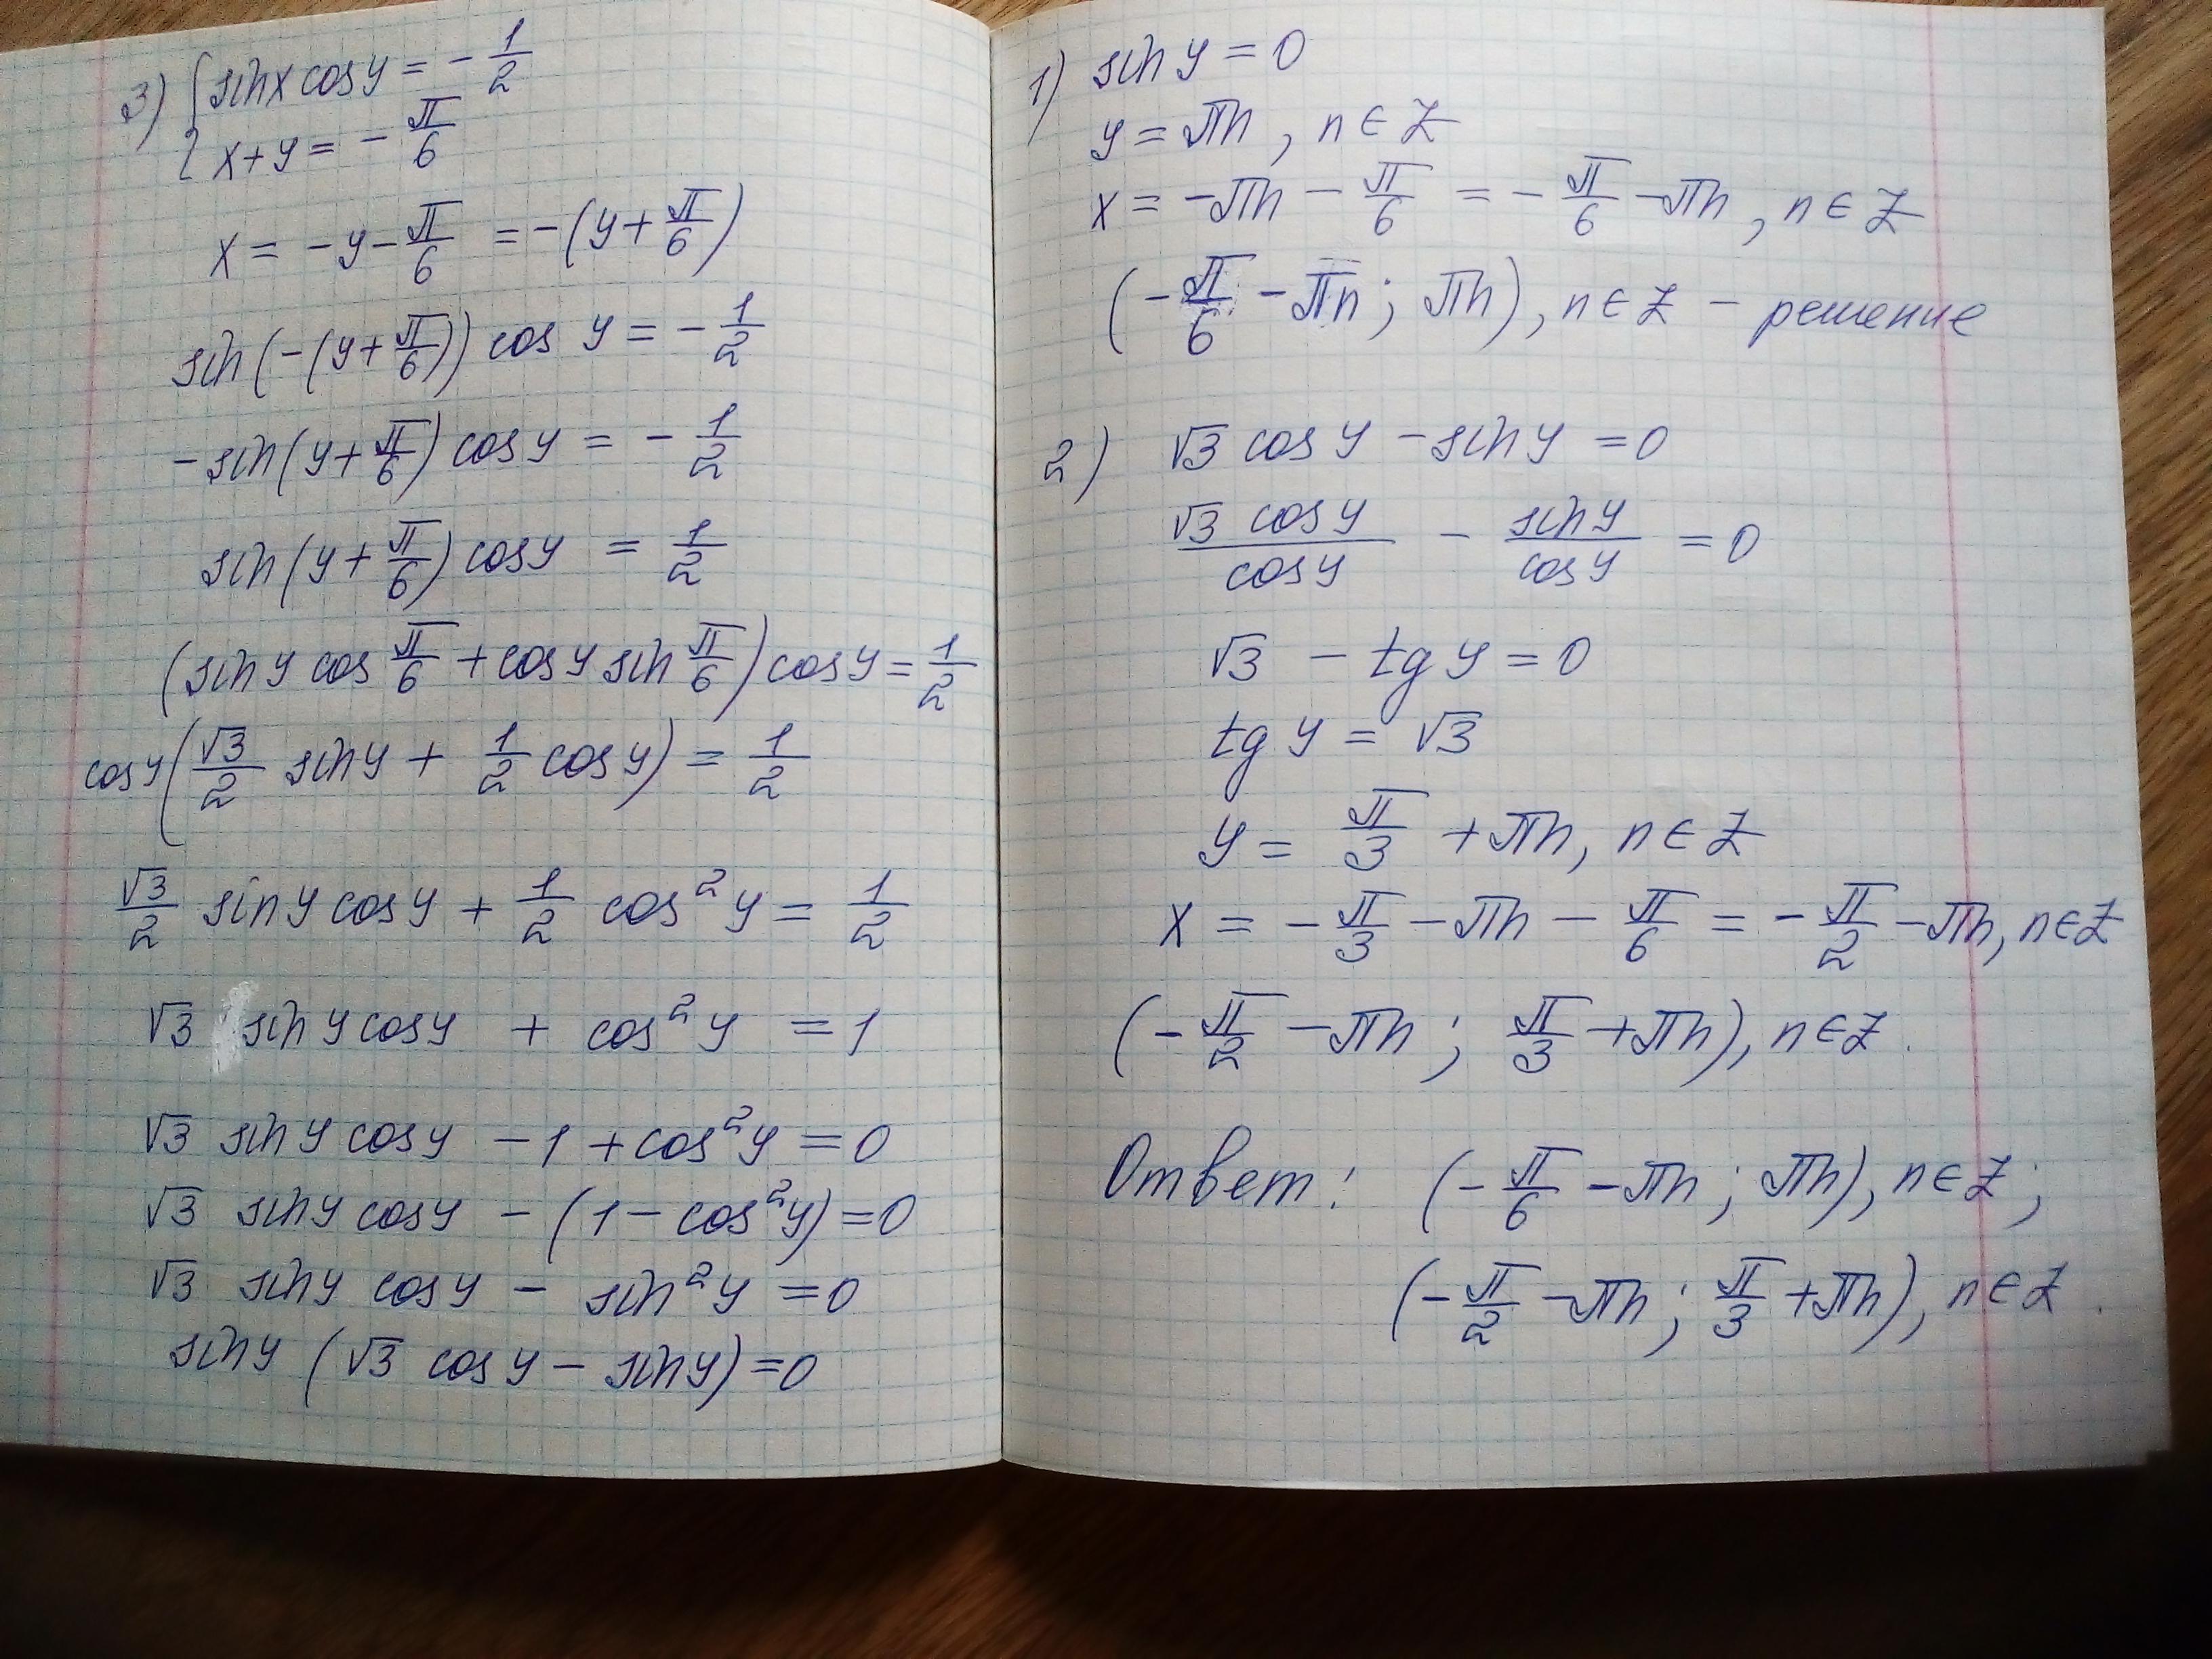 3) { sin x cos y = - 1/2
x + y = - π/6
x = - y - π/6 = - (y + π/6)
sin (- (y + π/6)) cos y = - 1/2
- sin (y + π/6) cos y = - 1/2
sin (y + π/6) cos y = 1/2
(sin y cos π/6 + cos y sin π/6) cos y = 1/2
cos y (√3/2 sin y + 1/2 cos y) = 1/2
√3/2 sin y cos y + 1/2 cos² y = 1/2
√3 sin y cos y + cos² y = 1
√3 sin y cos y - 1 + cos² y = 0
√3 sin y cos y - (1 - cos² y) = 0
√3 sin y cos y - sin² y = 0
sin y (√3 cos y - sin y) = 0
1) sin y = 0
y = πn, n ∈ Z
x = - πn - π/6 = - π/6 - πn, n ∈ Z
(- π/6 - πn; πn), n ∈ Z - решение
2) √3 cos y - sin y = 0
√3 cos y / cos y - sin y / cos y = 0
√3 - tg y = 0
tg y = √3
y = π/3 + πn, n ∈ Z
x = - π/3 - πn - π/6 = - π/2 - πn, n ∈ Z
(- π/2 - πn; π/3 + πn), n ∈ Z.
Ответ: (- π/6 - πn; πn), n ∈ Z;
(- π/2 - πn; π/3 + πn), n ∈ Z.